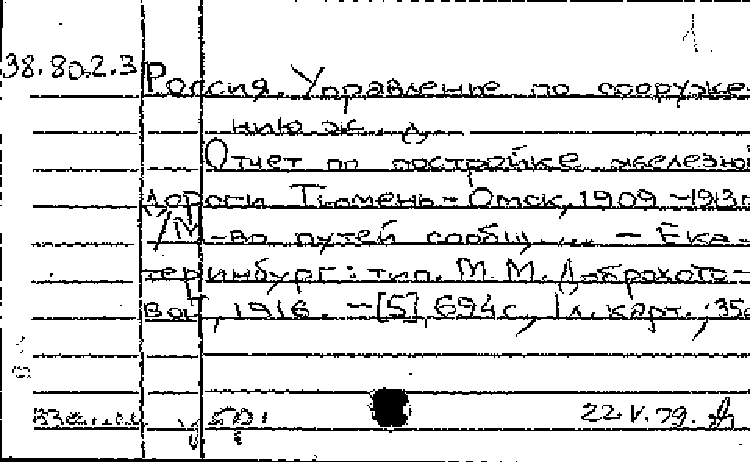 1.
38.80.2.3 Россия. Управление по сооруже-
нию ж. д.
Отчет по постройке железной
дороги Тюмень - Омск, 1909 - 1913г
/М-во путей сообщ... - Ека-
теринбург: тип. М. М. Доброхото-
вой, 1916. - [5] 694с, 1л. карт.; 35с
22.V.79.